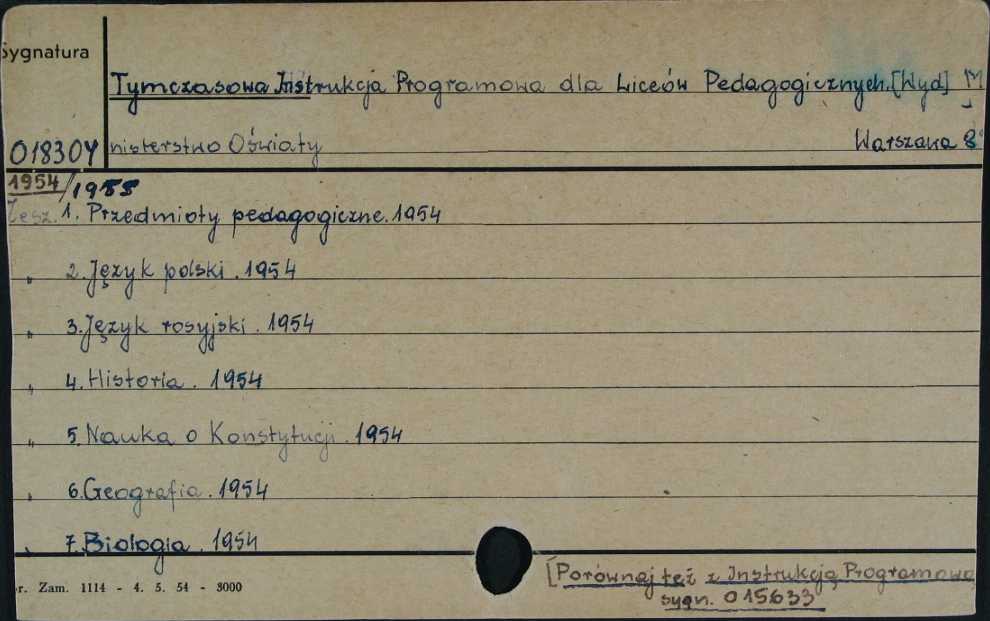 Sygnatura
Tymczasowa Instrukcja Programowa dla Liceów Pedagogicznych.[Wyd] Mi
nisterstwo Oświaty Warszawa 8°
018304
1954/1955
Zesz. 1. Przedmioty pedagogiczne. 1954
" 2. Język polski . 1954
" 3. Język rosyjski . 1954
" 4. Historia . 1954
" 5. Nauka o Konstytucji . 1954
" 6. Geografia . 1954
" 7. Biologia . 1954
r. Zam. 1114 - 4. 5. 54 - 3000
[Porównaj też z Instrukcją Programową
sygn. 015633